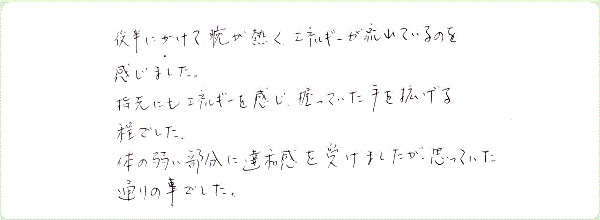 後半にかけて腕が熱く、エネルギーが流れているのを
感じました。
指先にもエネルギーを感じ、握っていた手を拡げる
程でした。
体の弱い部分に違和感を受けましたが、思っていた
通りの事でした。